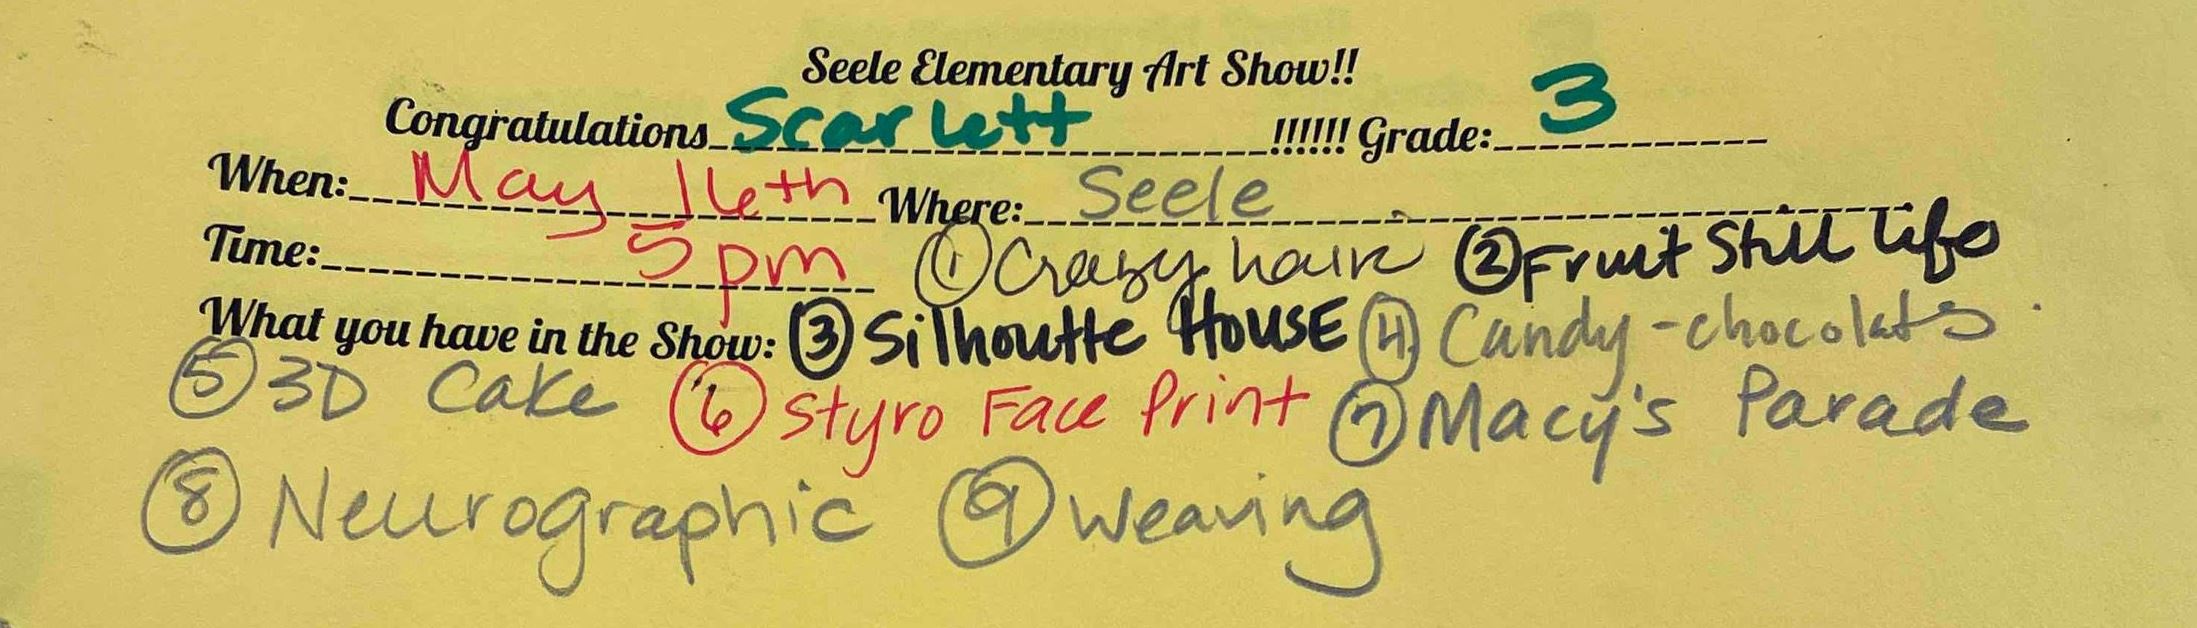 Seele Elementary Art Show!!
Congratulations Scarlett !!!!!! Grade: 3
When: May 16th Where: Seele
Time: 5pm ① Crazy hair ② Fruit Still life
What you have in the Show: ③ Silhoutte House ④ Candy-chocolats
⑤ 3D Cake ⑥ Styro Face Print ⑦ Macy's Parade
⑧ Neurographic ⑨ Weaving